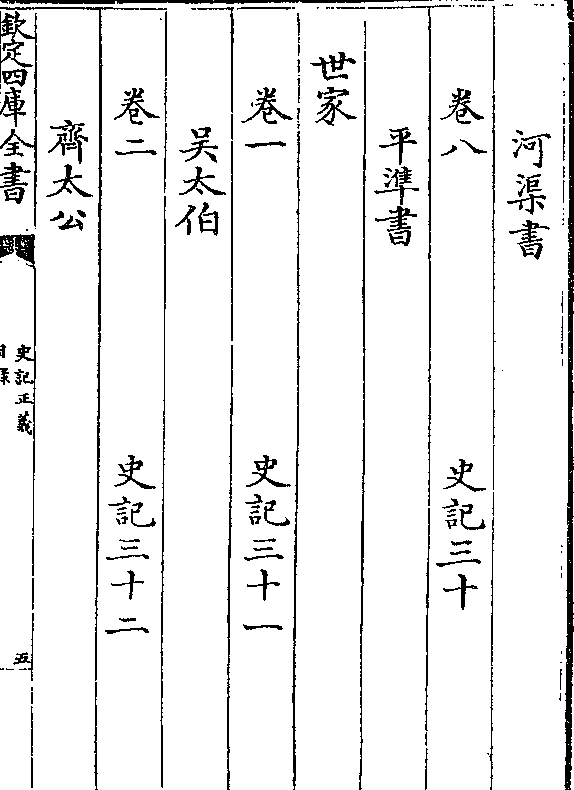 河渠書
卷八 史記三十
平準書
世家
卷一 史記三十一
吳太伯
卷二 史記三十二
齊太公
欽定四庫全書
史記正義
目錄
五